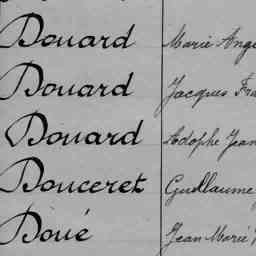 Douard Marie Ange
Douard Jacques Fra
Douard Adophe Jean
Douceret Guillaume
Doué Jean Marie